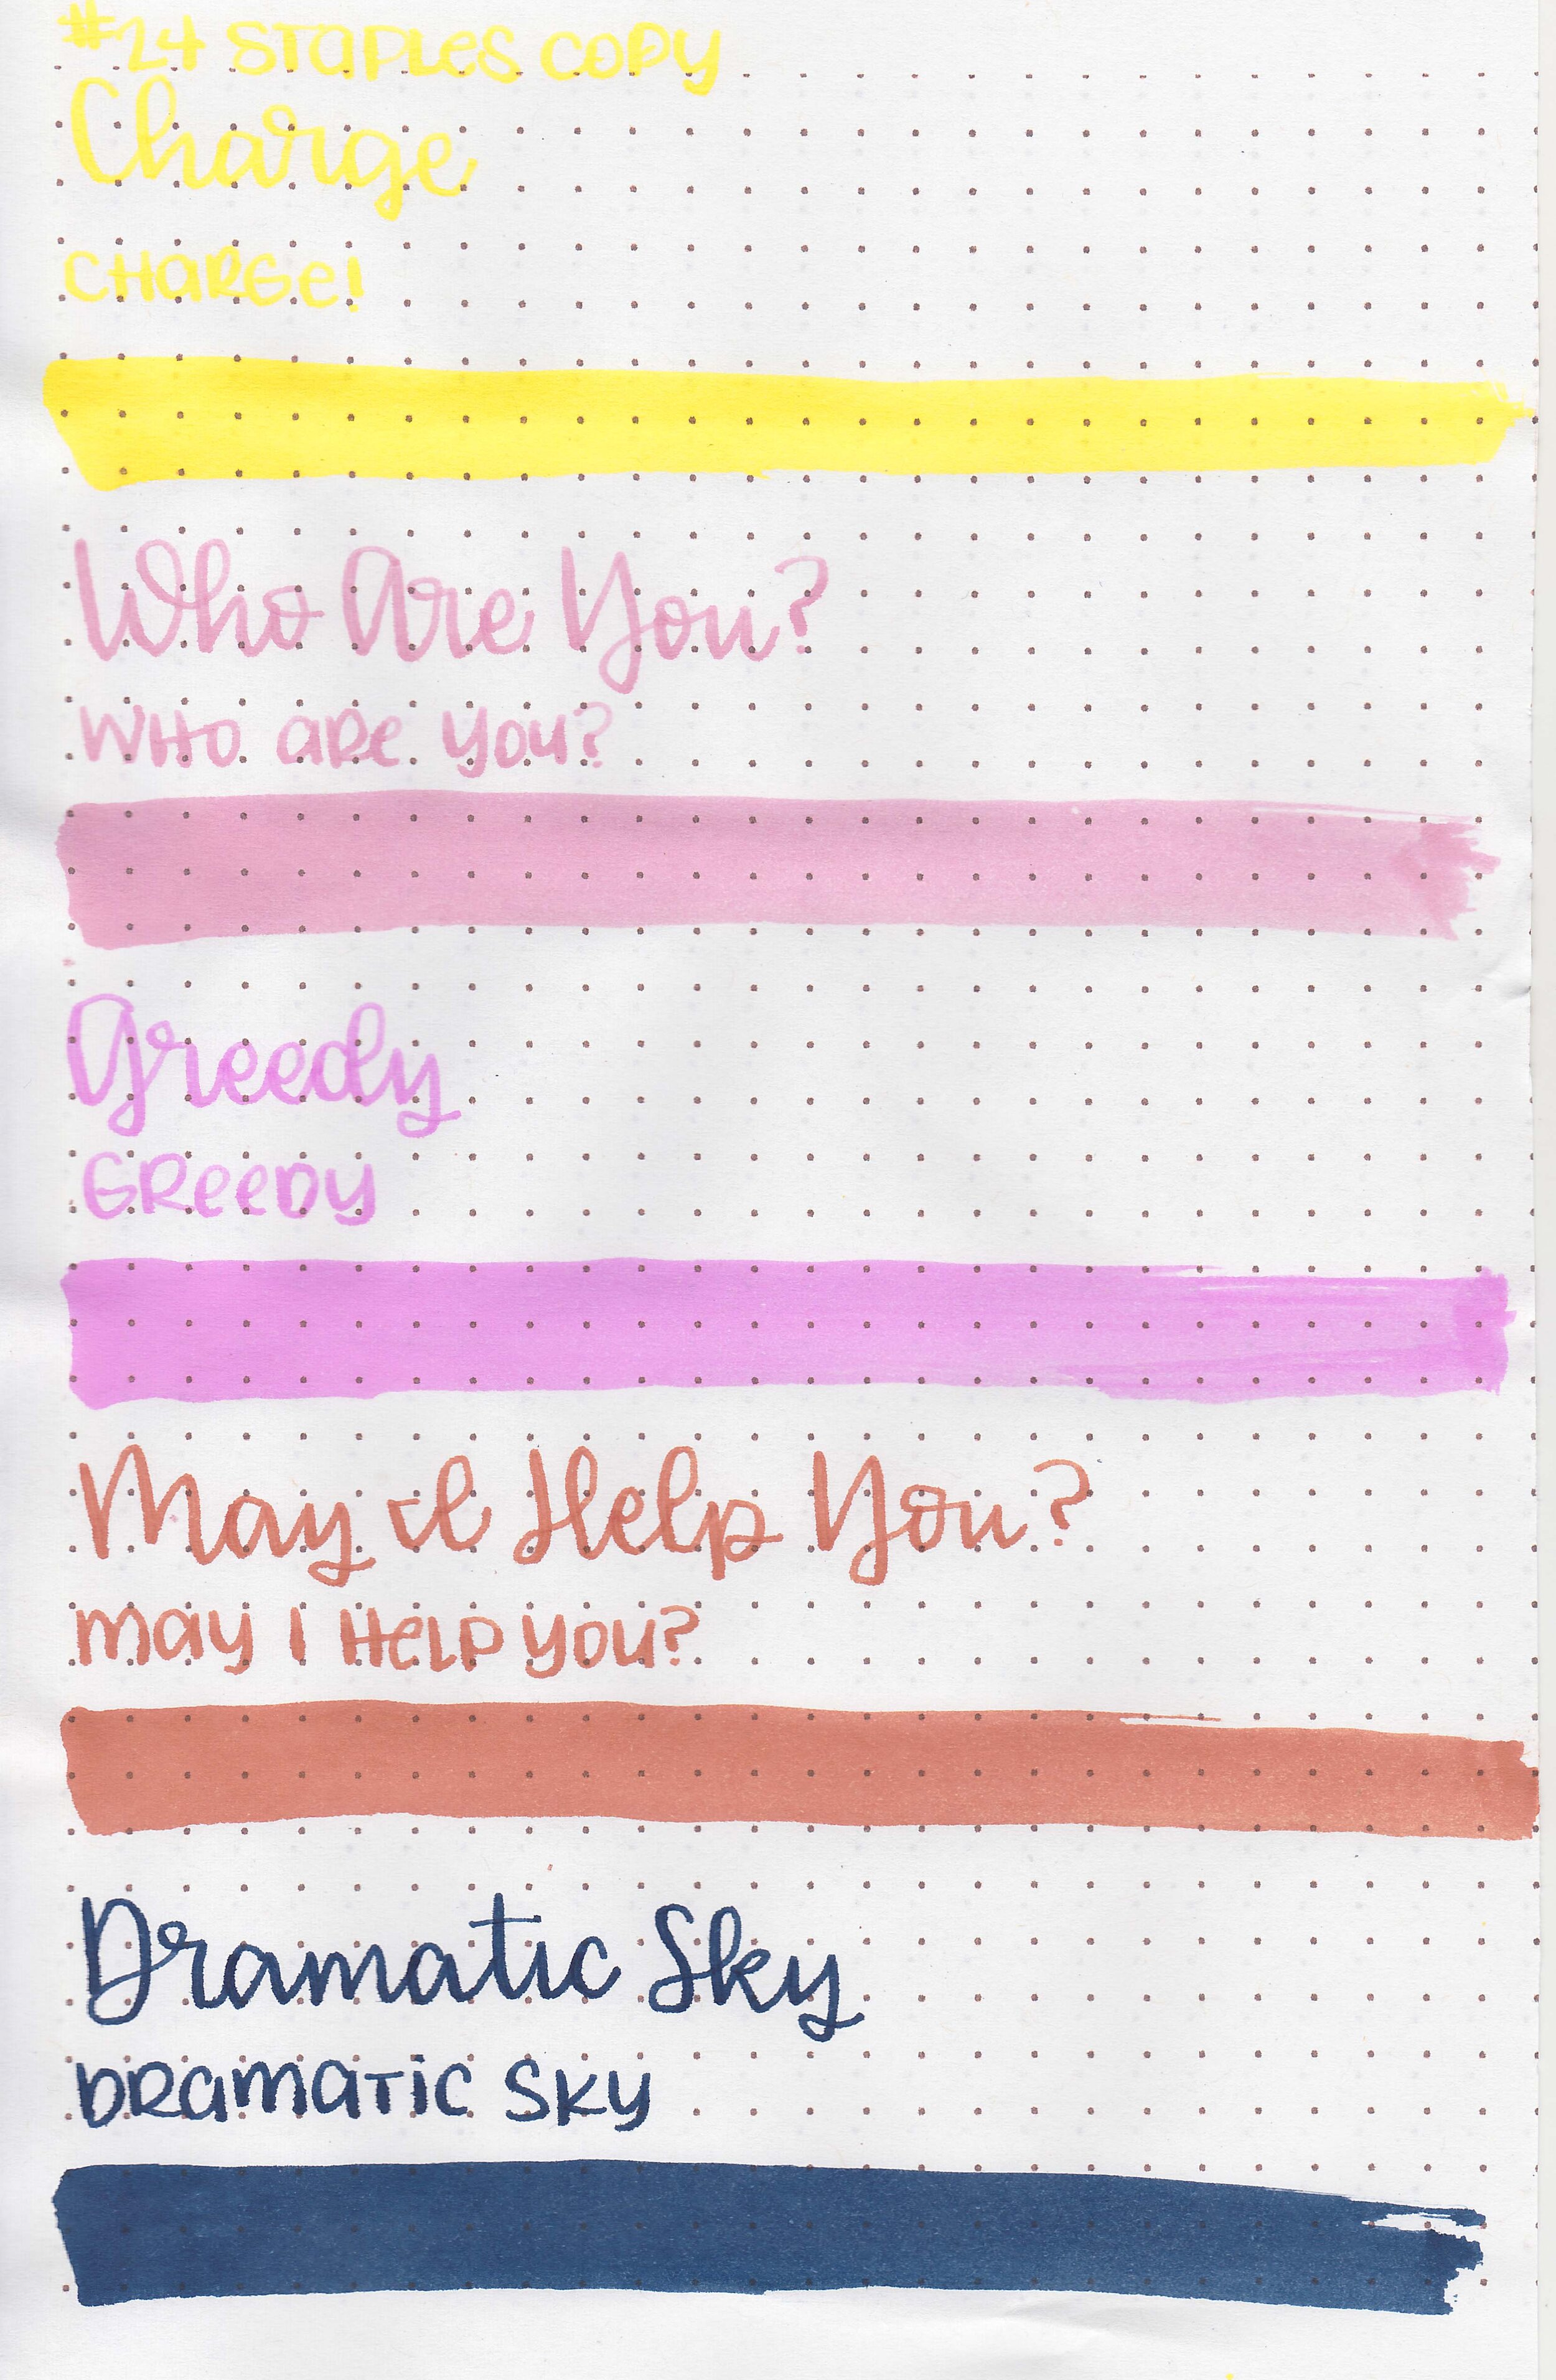 #24 STaPLes COPY
Charge
CHaRGe!
Who Are You?
WHO aRe you?
Greedy
GReeDy
May I Help You?
may I HeLP you?
Dramatic Sky
DRamaTic SKy